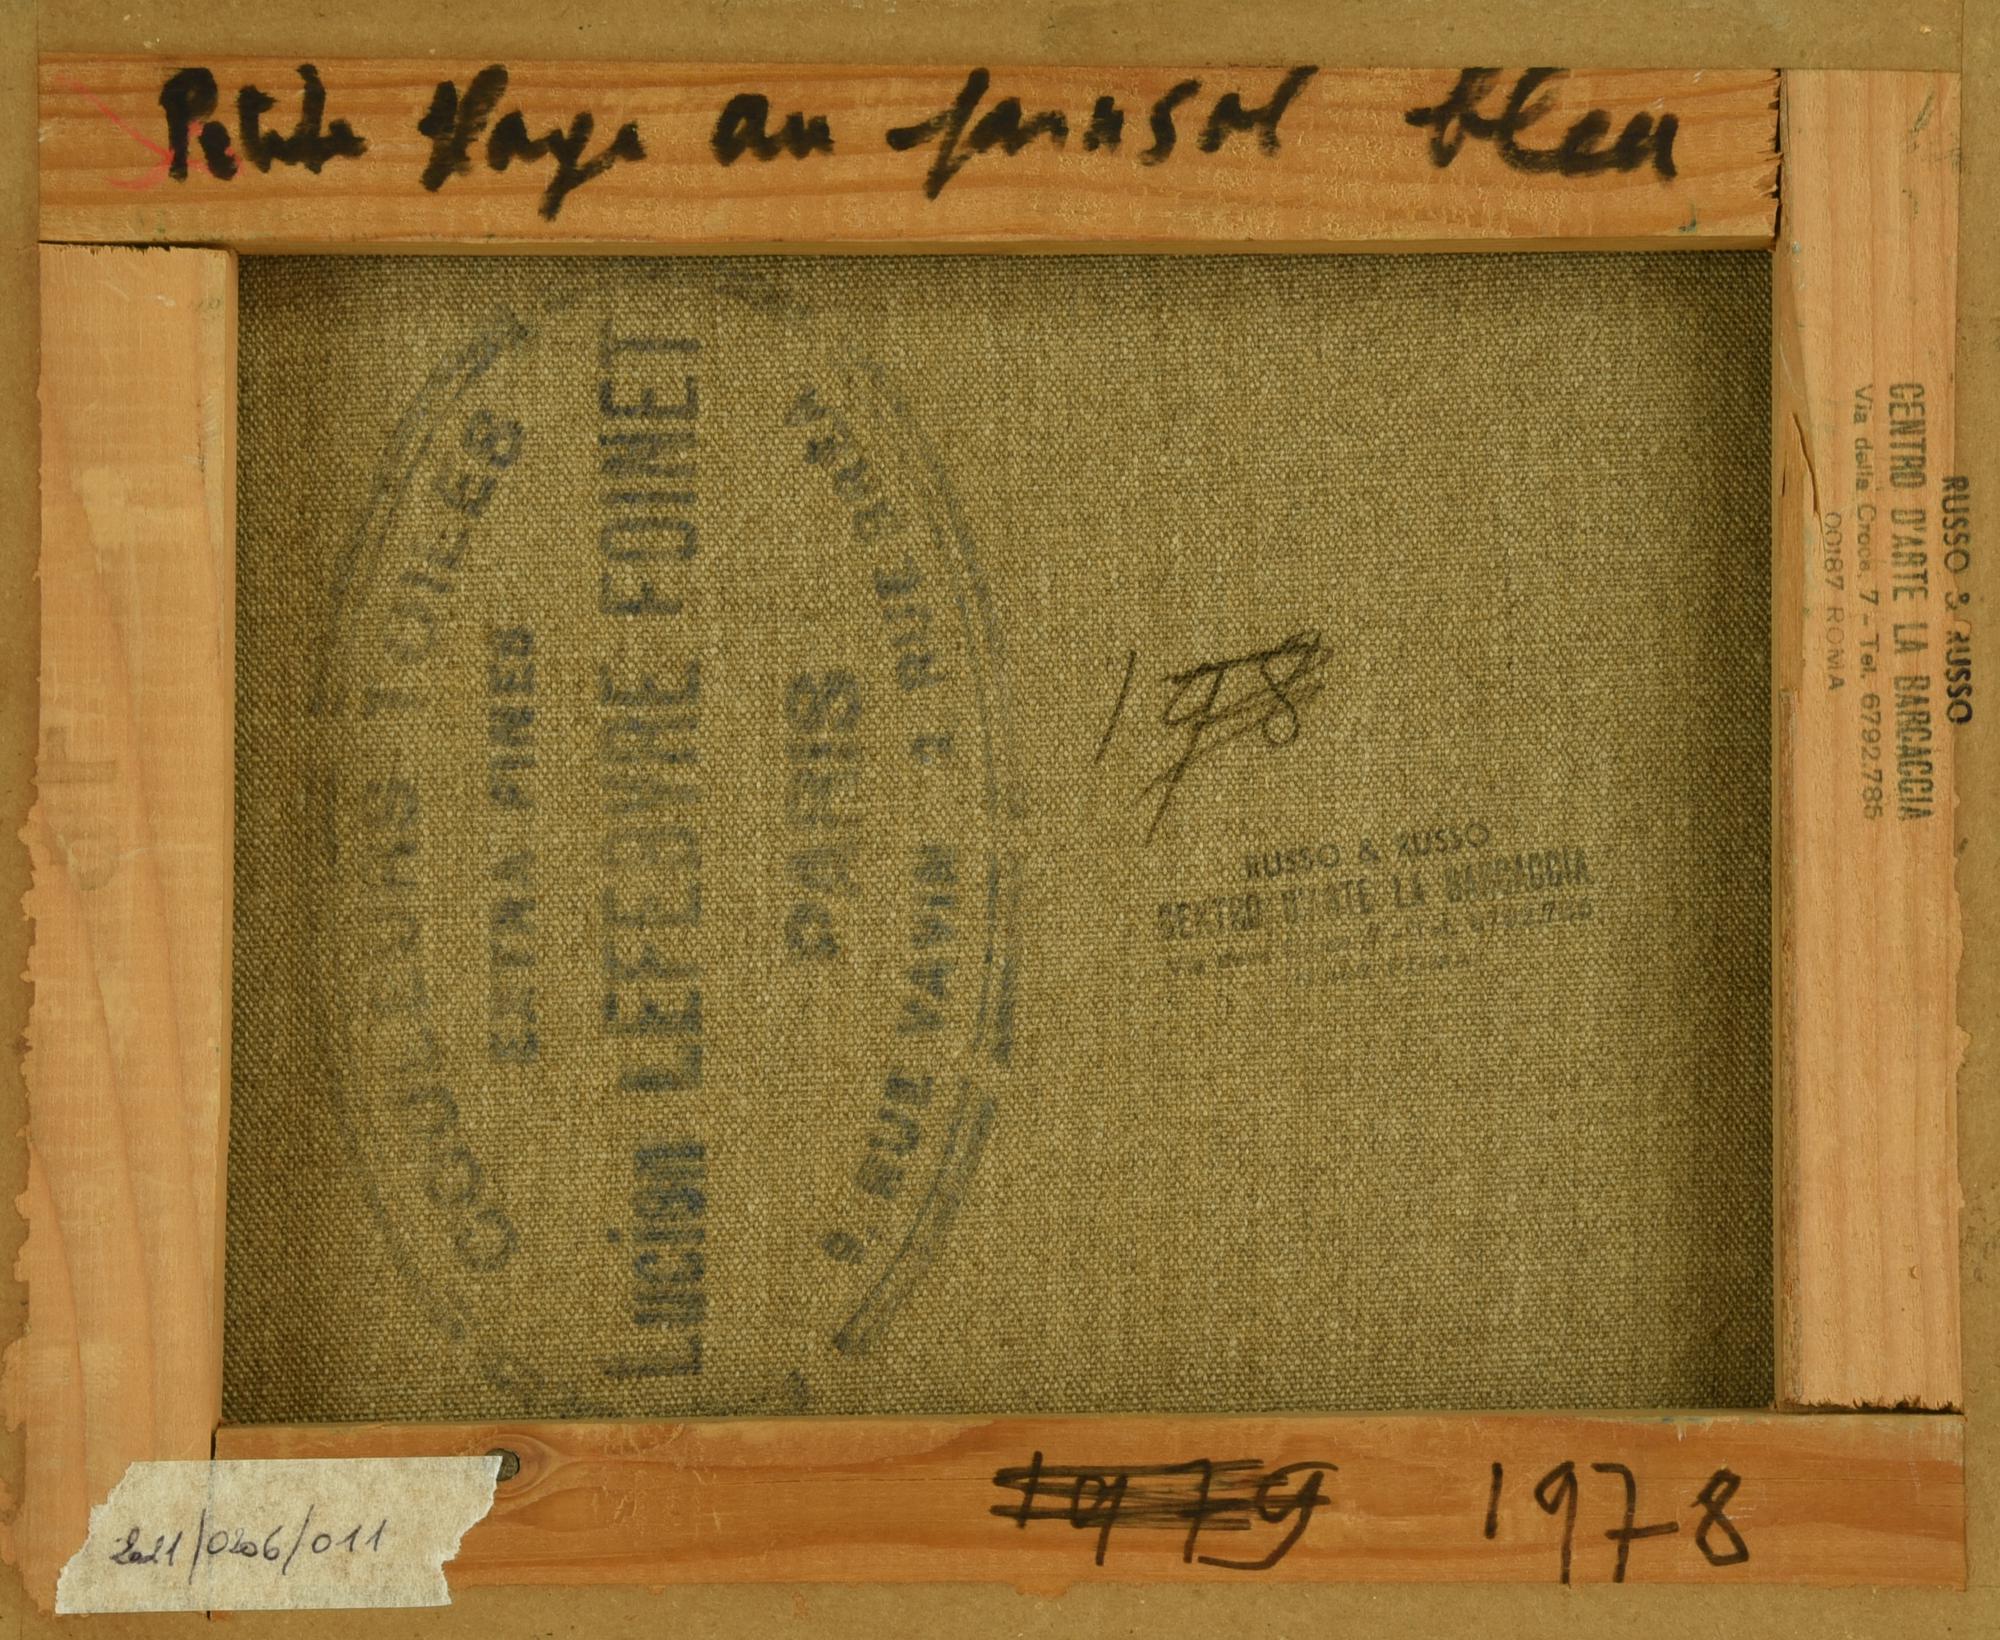 Petite Plage au parasol bleu
COULEURS TOILES
EXTRA FINES
Lucien LEFEBVRE FOINET
PARIS
2 RUE BREA
RUE VAVIN
198
RUSSO & RUSSO
CENTRO D'ARTE LA BARCACCIA
RUSSO & RUSSO
CENTRO D'ARTE LA BARCACCIA
Via della Croce, 7 - Tel. 6792.786
00187 ROMA
2021/0206/011
1979 1978